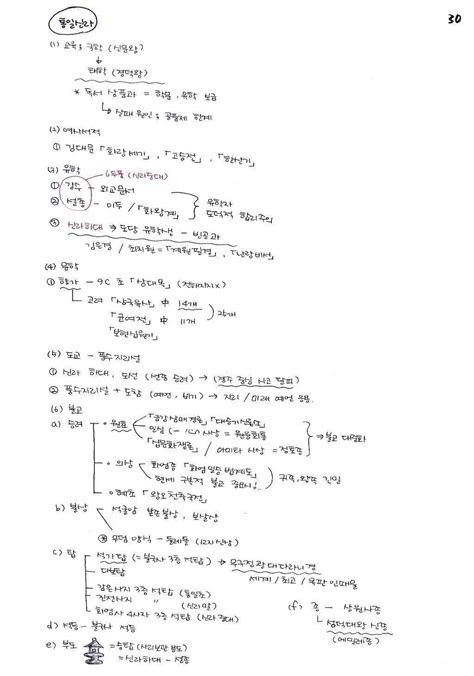 30
통일신라
(1) 교육 ; 국학 (신문왕)
태학 (경덕왕)
* 독서 삼품과 = 학문, 유학 보급
→ 실패 원인 ; 골품제 한계
(2) 역사서적
① 김대문 「화랑세기」, 「고승전」, 「한산기」
(3) 유학
6두품 (신라중대)
① 강수 - 외교문서
② 설총 - 이두 / 「화왕계」
유학자
도덕적 합리주의
③ 신라하대 ⇒ 도당 유학생 - 빈공과
김운경 / 최치원 = 「계원필경」, 「낭랑비서」
(4) 음악
① 향가 - 9C 초 「삼대목」 (전해지지X)
고려 「삼국유사」 中 14개
「균여전」 中 11개
25개
「보현십원가」
(5) 도교 - 풍수지리설
① 신라 하대, 도선 (선종 승려) → (경주 중심 사고 탈피)
② 풍수지리설 + 도참 (예언, 비기) → 지리 / 미래 예언 응용.
(6) 불교
a) 승려 - 원효 「금강삼매경론」 「대승기신론소」
일심 (一心) 사상 = 원융회통
「십문화쟁론」 / 아미타 사상 = 정토종
⇒ 불교 대중화
의상 화엄종 「화엄일승법계도」
귀족, 왕족 긴밀
혜초 「왕오천축국전」
b) 불상 - 석굴암 본존불상, 보살상
* 무덤 양식 - 둘레돌 (12지신상)
c) 탑 - 석가탑 (= 불국사 3층 석탑) → 무구정광대다라니경
세계 / 최고 / 목판 인쇄물
다보탑
감은사지 3층 석탑 (통일초)
진전사지 〃 (신라말)
화엄사 4사자 3층 석탑 (신라중대)
(f) 종 - 상원사종
성덕대왕 신종
(에밀레종)
d) 석등 - 불국사 석등
e) 부도 = 승탑 (사리보관 부도)
= 신라하대 - 선종